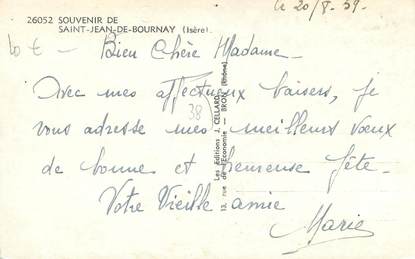 26052 SOUVENIR DE
SAINT-JEAN-DE-BOURNAY (Isère).
Le 20/8.59.
Bien Chère Madame.
Avec mes affectueux baisers, je
vous adresse mes meilleurs vœux
de bonne et heureuse fête.
Votre Vieille amie
Marie
38
Les Éditions J. CELLARD
13, rue de l'Économie - BRON (Rhône)